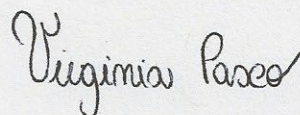 Virginia Pasco